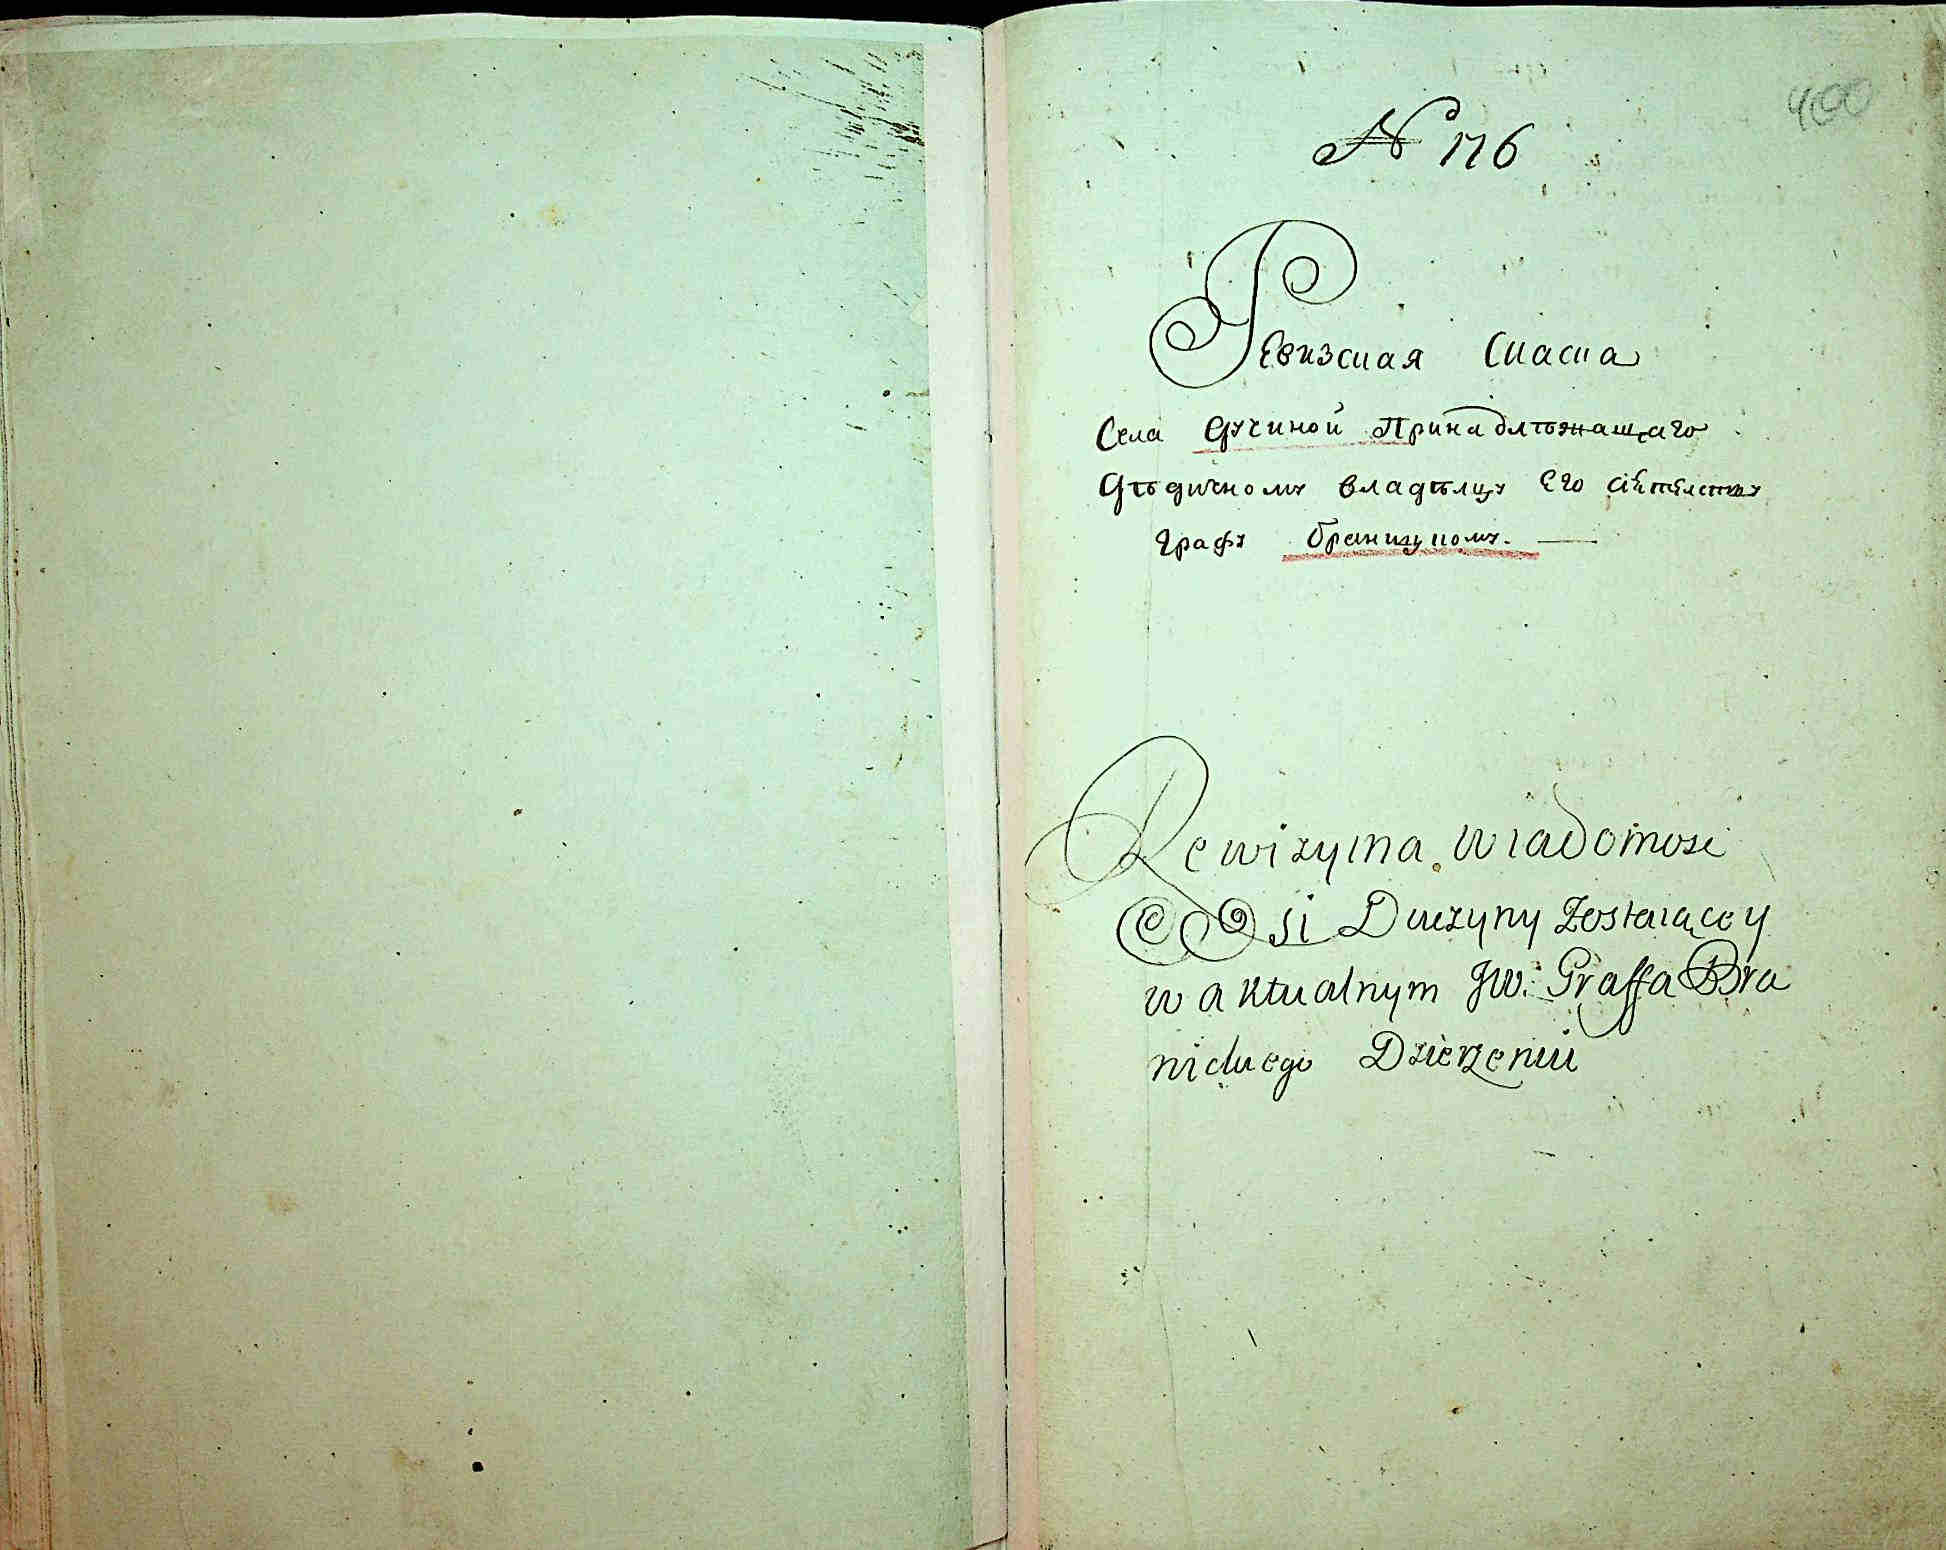 400
№ 176
Ревизская Скаска
Села Дучиной Принадлѣжащаго
Дѣдичному владѣлцу Его
Графу Браницкому.
Rewizyina wiadomosc
Wsi Duczyny Zostaiącey
w aktualnym JW. Graffa Bra
nickiego Dzierzeniu